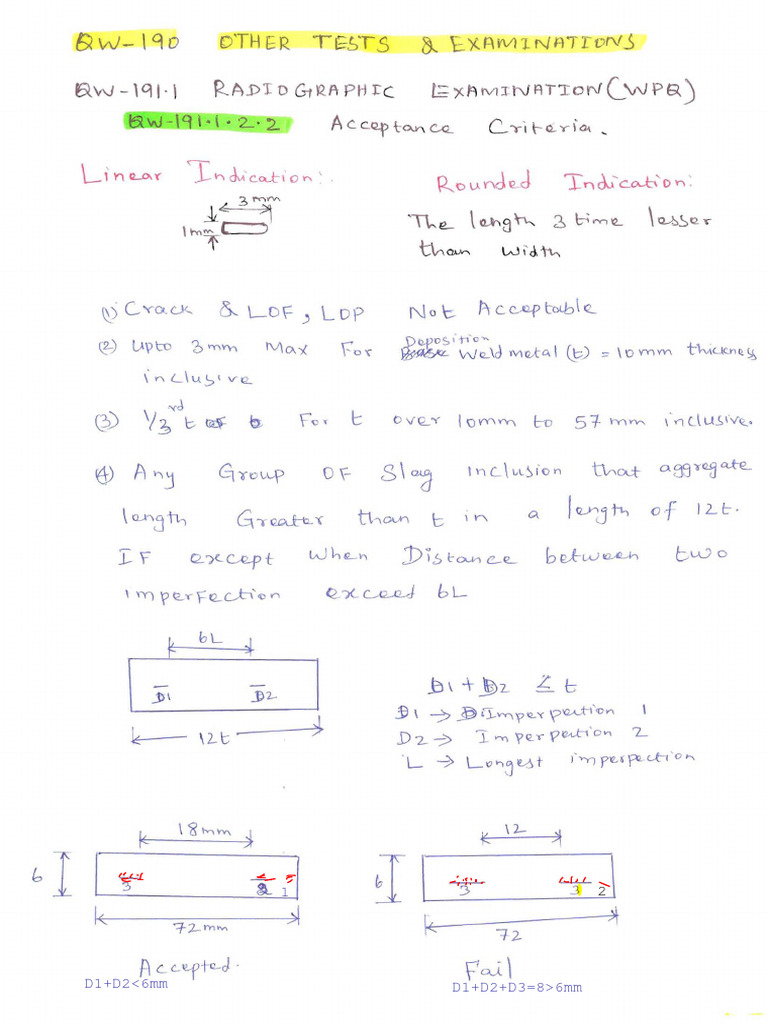 QW-190 OTHER TESTS & EXAMINATIONS
QW-191.1 RADIOGRAPHIC EXAMINATION (WPQ)
QW-191.1.2.2 Acceptance Criteria.
Linear Indication:.
Rounded Indication:
3mm
1mm
The length 3 time lesser
than width
(1) Crack & LOF, LOP Not Acceptable
Deposition
(2) Upto 3mm Max For Weld metal (t) = 10mm thickness
inclusive
(3) 1/3rd t For t over 10mm to 57mm inclusive.
(4) Any Group OF Slag inclusion that aggregate
length Greater than t in a length of 12t.
IF except when Distance between two
imperfection exceed 6L
6L
D1 D2
12t
D1 + D2 ≤ t
D1 → Imperpection 1
D2 → Imperpection 2
L → Longest imperpection
18mm
6
3 2 1
72mm
Accepted.
D1+D2<6mm
12
6
3 3 2
72
Fail
D1+D2+D3=8>6mm